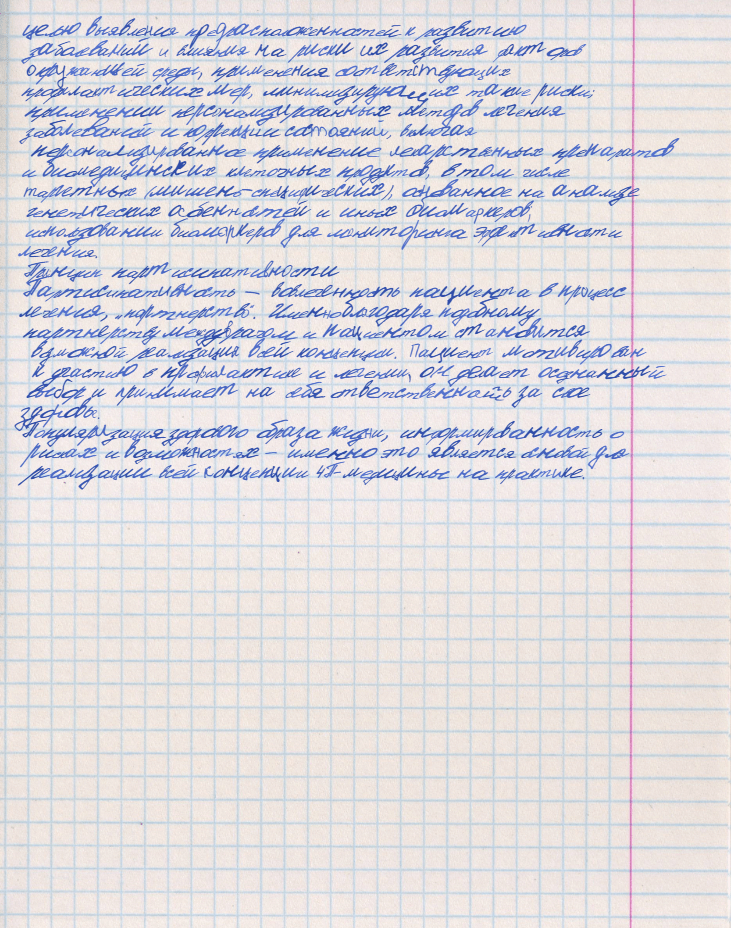 целью выявления предрасположенностей к развитию
заболеваний и влияния на риски их развития факторов
окружающей среды, применения соответствующих
профилактических мер, минимизирующих такие риски;
применении персонализированных методов лечения
заболеваний и коррекции состояний, включая
персонализированное применение лекарственных препаратов
и биомедицинских клеточных продуктов, в том числе
таргетных (мишень-специфических), основанное на анализе
генетических особенностей и иных биомаркеров;
использовании биомаркеров для мониторинга эффективности
лечения.
Принцип партисипативности
Партисипативность – вовлеченность пациента в процесс
лечения, „партнерство". Именно благодаря подобному
партнерству между врачом и пациентом становится
возможной реализация всей концепции. Пациент мотивирован
к участию в профилактике и лечении, он делает осознанный
выбор и принимает на себя ответственность за свое
здоровье.
Популяризация здорового образа жизни, информированность о
рисках и возможностях – именно это является основой для
реализации всей концепции 4П-медицины на практике.